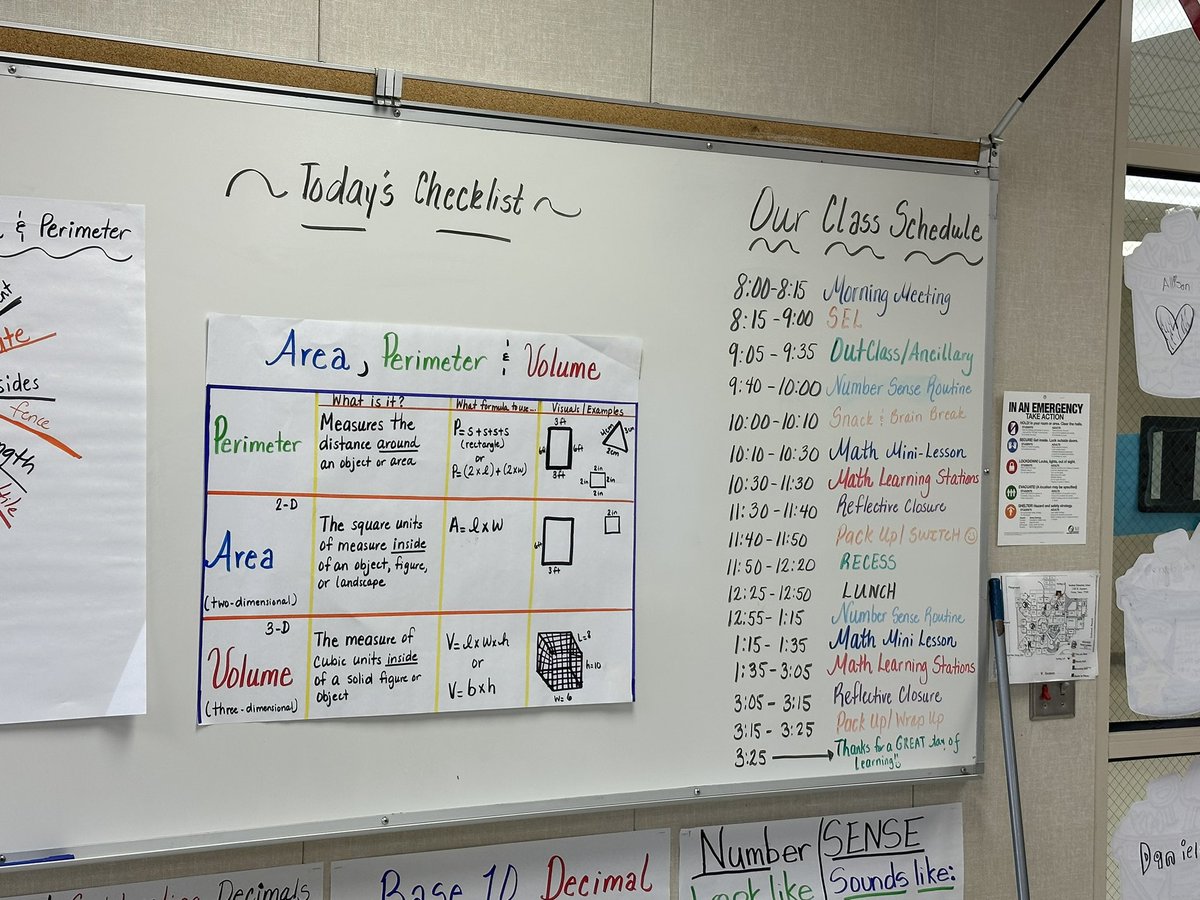 & Perimeter
sides
fence
~ Today's Checklist ~
Area, Perimeter & Volume
What is it?
What formula to use...
Visuals/Examples
Perimeter
Measures the
distance around
an object or area
P=s+s+s+s
(rectangle)
or
P=(2×l)+(2×w)
3ft
6ft
3ft
2cm
2in
2in
2in
2in
2-D
Area
(two-dimensional)
The square units
of measure inside
of an object, figure,
or landscape
A=l×w
6ft
3ft
2in
3-D
Volume
(three-dimensional)
The measure of
cubic units inside
of a solid figure or
object
V=l×w×h
or
V=b×h
L=8
h=10
W=6
Our Class Schedule
8:00-8:15 Morning Meeting
8:15-9:00 SEL
9:05-9:35 OutClass/Ancillary
9:40-10:00 Number Sense Routine
10:00-10:10 Snack & Brain Break
10:10-10:30 Math Mini-Lesson
10:30-11:30 Math Learning Stations
11:30-11:40 Reflective Closure
11:40-11:50 Pack Up/SWITCH
11:50-12:20 RECESS
12:25-12:50 LUNCH
12:55-1:15 Number Sense Routine
1:15-1:35 Math Mini Lesson
1:35-3:05 Math Learning Stations
3:05-3:15 Reflective Closure
3:15-3:25 Pack Up/Wrap Up
3:25 → Thanks for a GREAT day of
Learning!
IN AN EMERGENCY
TAKE ACTION
Allison
Daniel
Decimals
Base 10 Decimal
Number
Look like
SENSE
Sounds like: